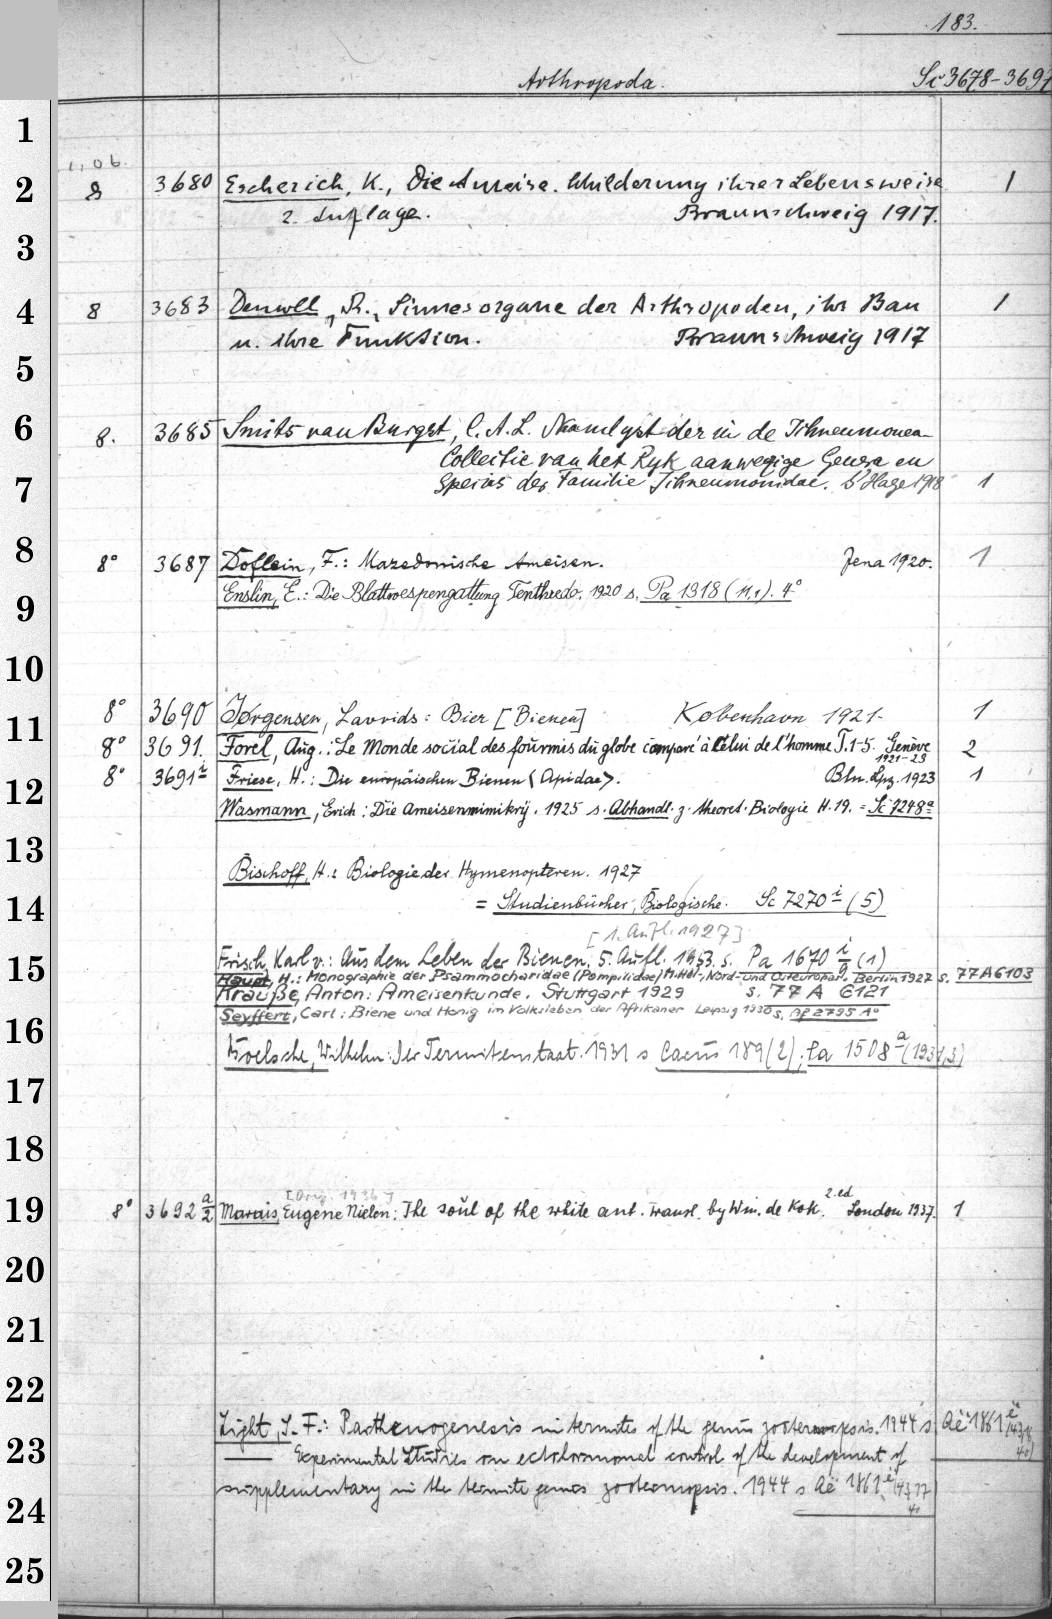 183.
Arthropoda. Sc 3678-3697
1
1,06.
2 8 3680 Escherich, K., Die Ameise. Schilderung ihrer Lebensweise 1
2. Auflage. Braunschweig 1917.
3
4 8 3683 Demoll, R., Sinnesorgane der Arthropoden, ihr Bau 1
u. ihre Funktion. Braunschweig 1917
5
6 8. 3685 Smits van Burgst, C. A. L. Naamlyst der in de Ichneumonen-
Collectie van het Ryk aanwezige Genera en
7 Species der Familie Ichneumonidae. s'Hage 1918 1
8 8° 3687 Doflein, F.: Mazedonische Ameisen. Jena 1920. 1
9 Enslin, E.: Die Blattwespengattung Tenthredo. 1920 s. Pa 1318 (11,1). 4°
10
11 8° 3690 Jørgensen, Lavrids: Bier [Bienen] København 1921- 1
8° 3691. Forel, Aug.: Le Monde social des fourmis du globe comparé à celui de l'homme T. 1-5. Genève 2
1921-23
12 8° 3691 Friese, H.: Die europäischen Bienen <Apidae>. Bln. Lpz. 1923 1
Wasmann, Erich: Die Ameisenmimikry. 1925 s. Abhandl. z. theoret. Biologie H. 19. = Sc 7248a
13 Bischoff, H.: Biologie der Hymenopteren. 1927
14 = Studienbücher, Biologische. Sc 7270 i (5)
[1. Aufl. 1927]
15 Frisch, Karl v.: Aus dem Leben der Bienen. 5. Aufl. 1953. s. Pa 1670 i/9 (1)
Haupt, H.: Monographie der Psammocharidae (Pompilidae) Mittel-, Nord- und Osteuropas. Berlin 1927 s. 77 A 6103
Krauße, Anton: Ameisenkunde. Stuttgart 1929 s. 77 A 6121
Seyffert, Carl: Biene und Honig im Volksleben der Afrikaner Leipzig 1930 s. Af 2795 A°
16 Boelsche, Wilhelm: Der Termitenstaat. 1931 s Caeus 189 (2); La 1508 a (1931,3)
17
18
[Orig. 1936]
19 8° 3692 a/2 Marais, Eugène Nielen: The soul of the white ant. Transl. by Win. de Kok. 2.ed London 1937. 1
20
21
22
Light, S. F.: Parthenogenesis in termites of the genus zootermopsis. 1944 s Aë 1861 ë
23 — Experimental Studies on ectohormonal control of the development of
24 supplementary in the termite genus zootermopsis. 1944 s Aë 1861 ë
25